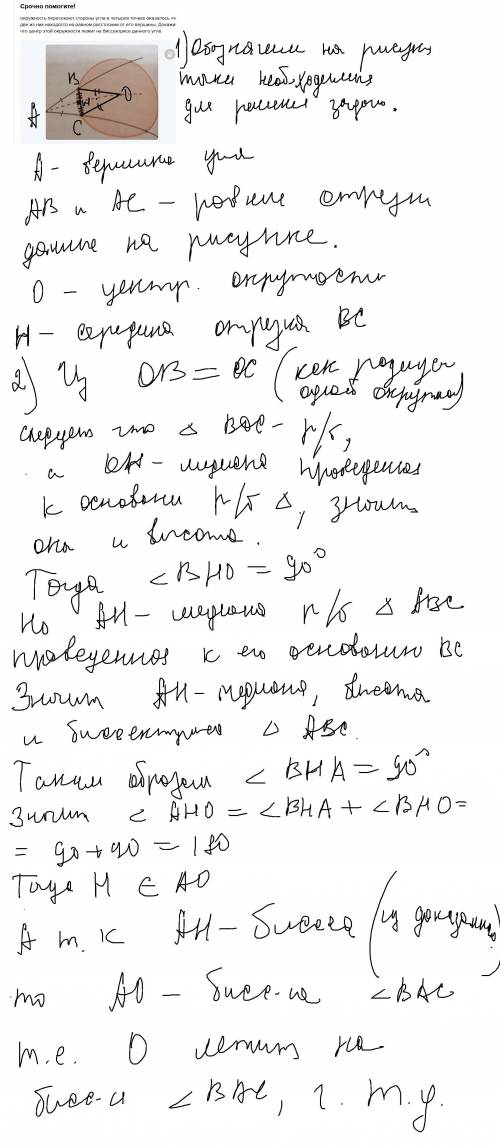 Срочно помогите!
окружность пересекает стороны угла в четырех точках оказалось чт
две из них находятся на равном расстоянии от его вершины. Докажи
что центр этой окружности лежит на биссектрисе данного угла
B
A
H
O
C
1) Обозначим на рисунке
точки необходимые
для решения задачи.
A - вершина угла
AB и AC - равные отрезки
данные на рисунке.
O - центр. окружности
H - середина отрезка BC
2) Из OB = OC (как радиусы
одной окружности)
следует что △ BOC - р/б,
а OH - медиана проведенная
к основанию р/б △, значит
она и высота.
Тогда ∠BHO = 90°
Но AH - медиана р/б △ ABC
проведенная к его основанию BC
Значит AH - медиана, высота
и биссектриса △ ABC.
Таким образом ∠ BHA = 90°
Значит ∠ AHO = ∠BHA + ∠BHO =
= 90 + 90 = 180
Тогда H ∈ AO
А т.к AH - биссе-са (из доказанного)
то AO - бисс-са ∠BAC
т.е. O лежит на
бисс-и ∠BAC, ч. т. д.